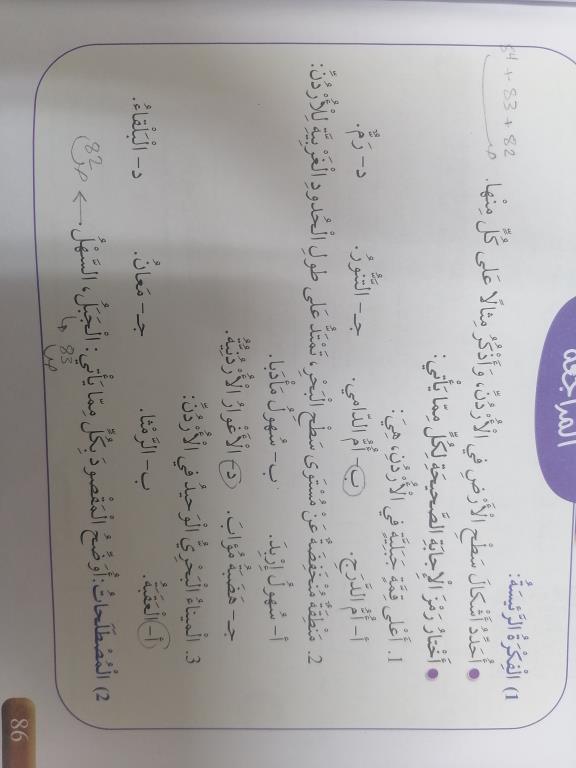 المراجعة
1) الْفِكْرَةُ الرَّئيسَةُ:
84 + 83 + 82 ص
• أُحَدِّدُ أَشْكالَ سَطْحِ الْأَرْضِ في الْأُرْدُنِّ، وَأَذْكُرُ مِثالًا عَلى كُلٍّ مِنْها.
• أَخْتارُ رَمْزَ الْإِجابَةِ الصَّحيحَةِ لِكُلٍّ مِمّا يَأْتي:
1. أَعْلى قِمَّةٍ جَبَلِيَّةٍ في الْأُرْدُنِّ، هِيَ:
أ- أُمُّ الدَّرَجِ. ب- أُمُّ الدّامي. جـ- التَّنّورُ. د- رَمٌّ.
2. مَنْطِقَةٌ مُنْخَفِضَةٌ عَنْ مُسْتَوى سَطْحِ الْبَحْرِ، تَمْتَدُّ عَلى طولِ الْحُدودِ الْغَرْبِيَّةِ لِلْأُرْدُنِّ:
أ- سُهولُ إِرْبِدَ. ب- سُهولُ مَأْدَبا.
جـ- هَضَبَةُ مُؤابَ. د- الْأَغْوارُ الْأُرْدُنِيَّةُ.
3. الْميناءُ الْبَحْرِيُّ الْوَحيدُ في الْأُرْدُنِّ:
أ- الْعَقَبَةُ. ب- الرَّمْثا. جـ- مَعانُ. د- الْبَلْقاءُ.
2) الْمُصْطَلَحاتُ: أُوَضِّحُ الْمَقْصودَ بِكُلٍّ مِمّا يَأْتي: الْجَبَلُ، السَّهْلُ. ← ص 82
ص 83
86